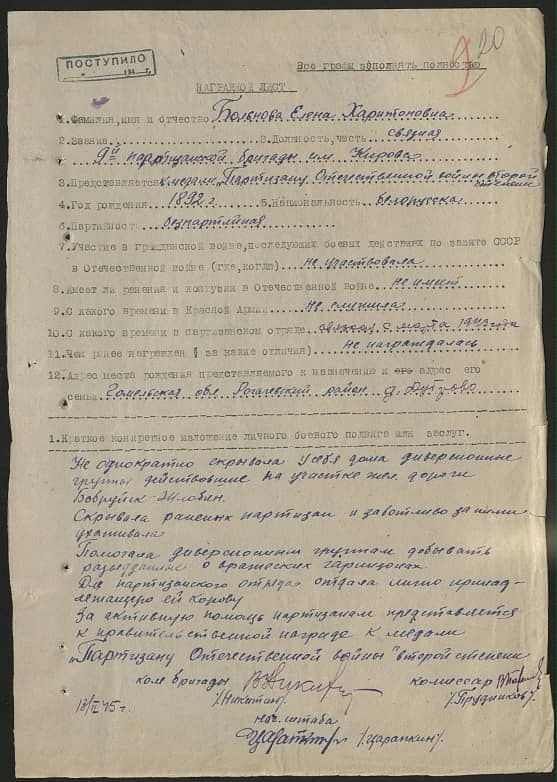 ПОСТУПИЛО
194 г.
9
20
Все графы заполнять полностью
НАГРАДНОЙ ЛИСТ
1. Фамилия, имя и отчество Больнова Елена Харитоновна
2. Звание 3. Должность, часть связная
9й партизанской бригады им. Кирова
3. Представляется к медали „Партизану Отечественной войны второй степени
4. Год рождения 1892 г 5. Национальность белорусска
6. Партийность безпартийная
7. Участие в гражданской войне, последующих боевых действиях по защите СССР
в Отечественной войне (где, когда) не участвовала
8. Имеет ли ранения и контузии в Отечественной войне не имеет
9. С какого времени в Красной Армии Не служила
10. С какого времени в партизанском отряде связная с марта 1943 года
11. Чем ранее награжден ( за какие отличия) не награждалась
12. Адрес места рождения представляемого к назначению и его адрес его
семьи Гомельская обл Рогачевский район д.
1. Краткое конкретное изложение личного боевого подвига или заслуг.
Не однократно скрывала у себя дома диверсионные
группы действовавшие на участке жел. дороги
Бобруйск-Жлобин.
Скрывала раненых партизан и заботливо за ними
ухаживала
Помогала диверсионным группам добывать
разведданные о вражеских гарнизонах.
Для партизанского отряда отдала лично принад-
лежащую ей корову
За активную помощь партизанам представляется
к правительственной награде к медали
„Партизану Отечественной войны" второй степени
ком бригады комиссар
/Никитин/ /Прудников/.
18/II 45 г.
нач. штаба
/Царапкин/.